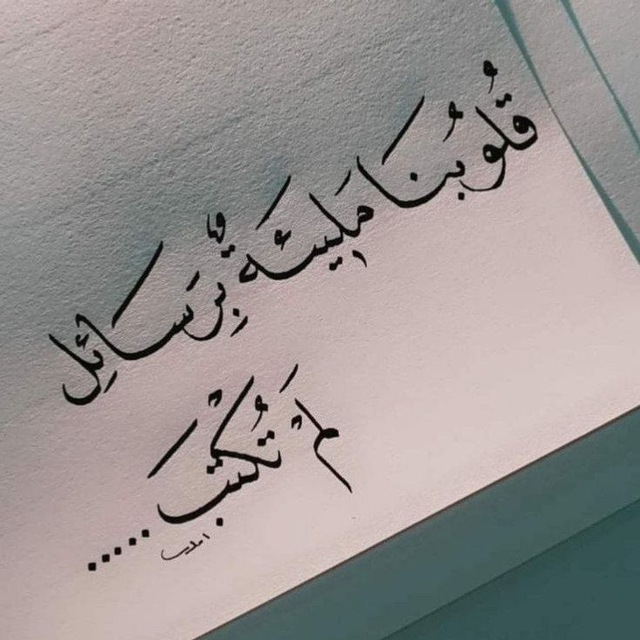 قُلُوبُنَا مَلِيئَةٌ بِرَسَائِل
لَمْ تُكْتَبْ.....